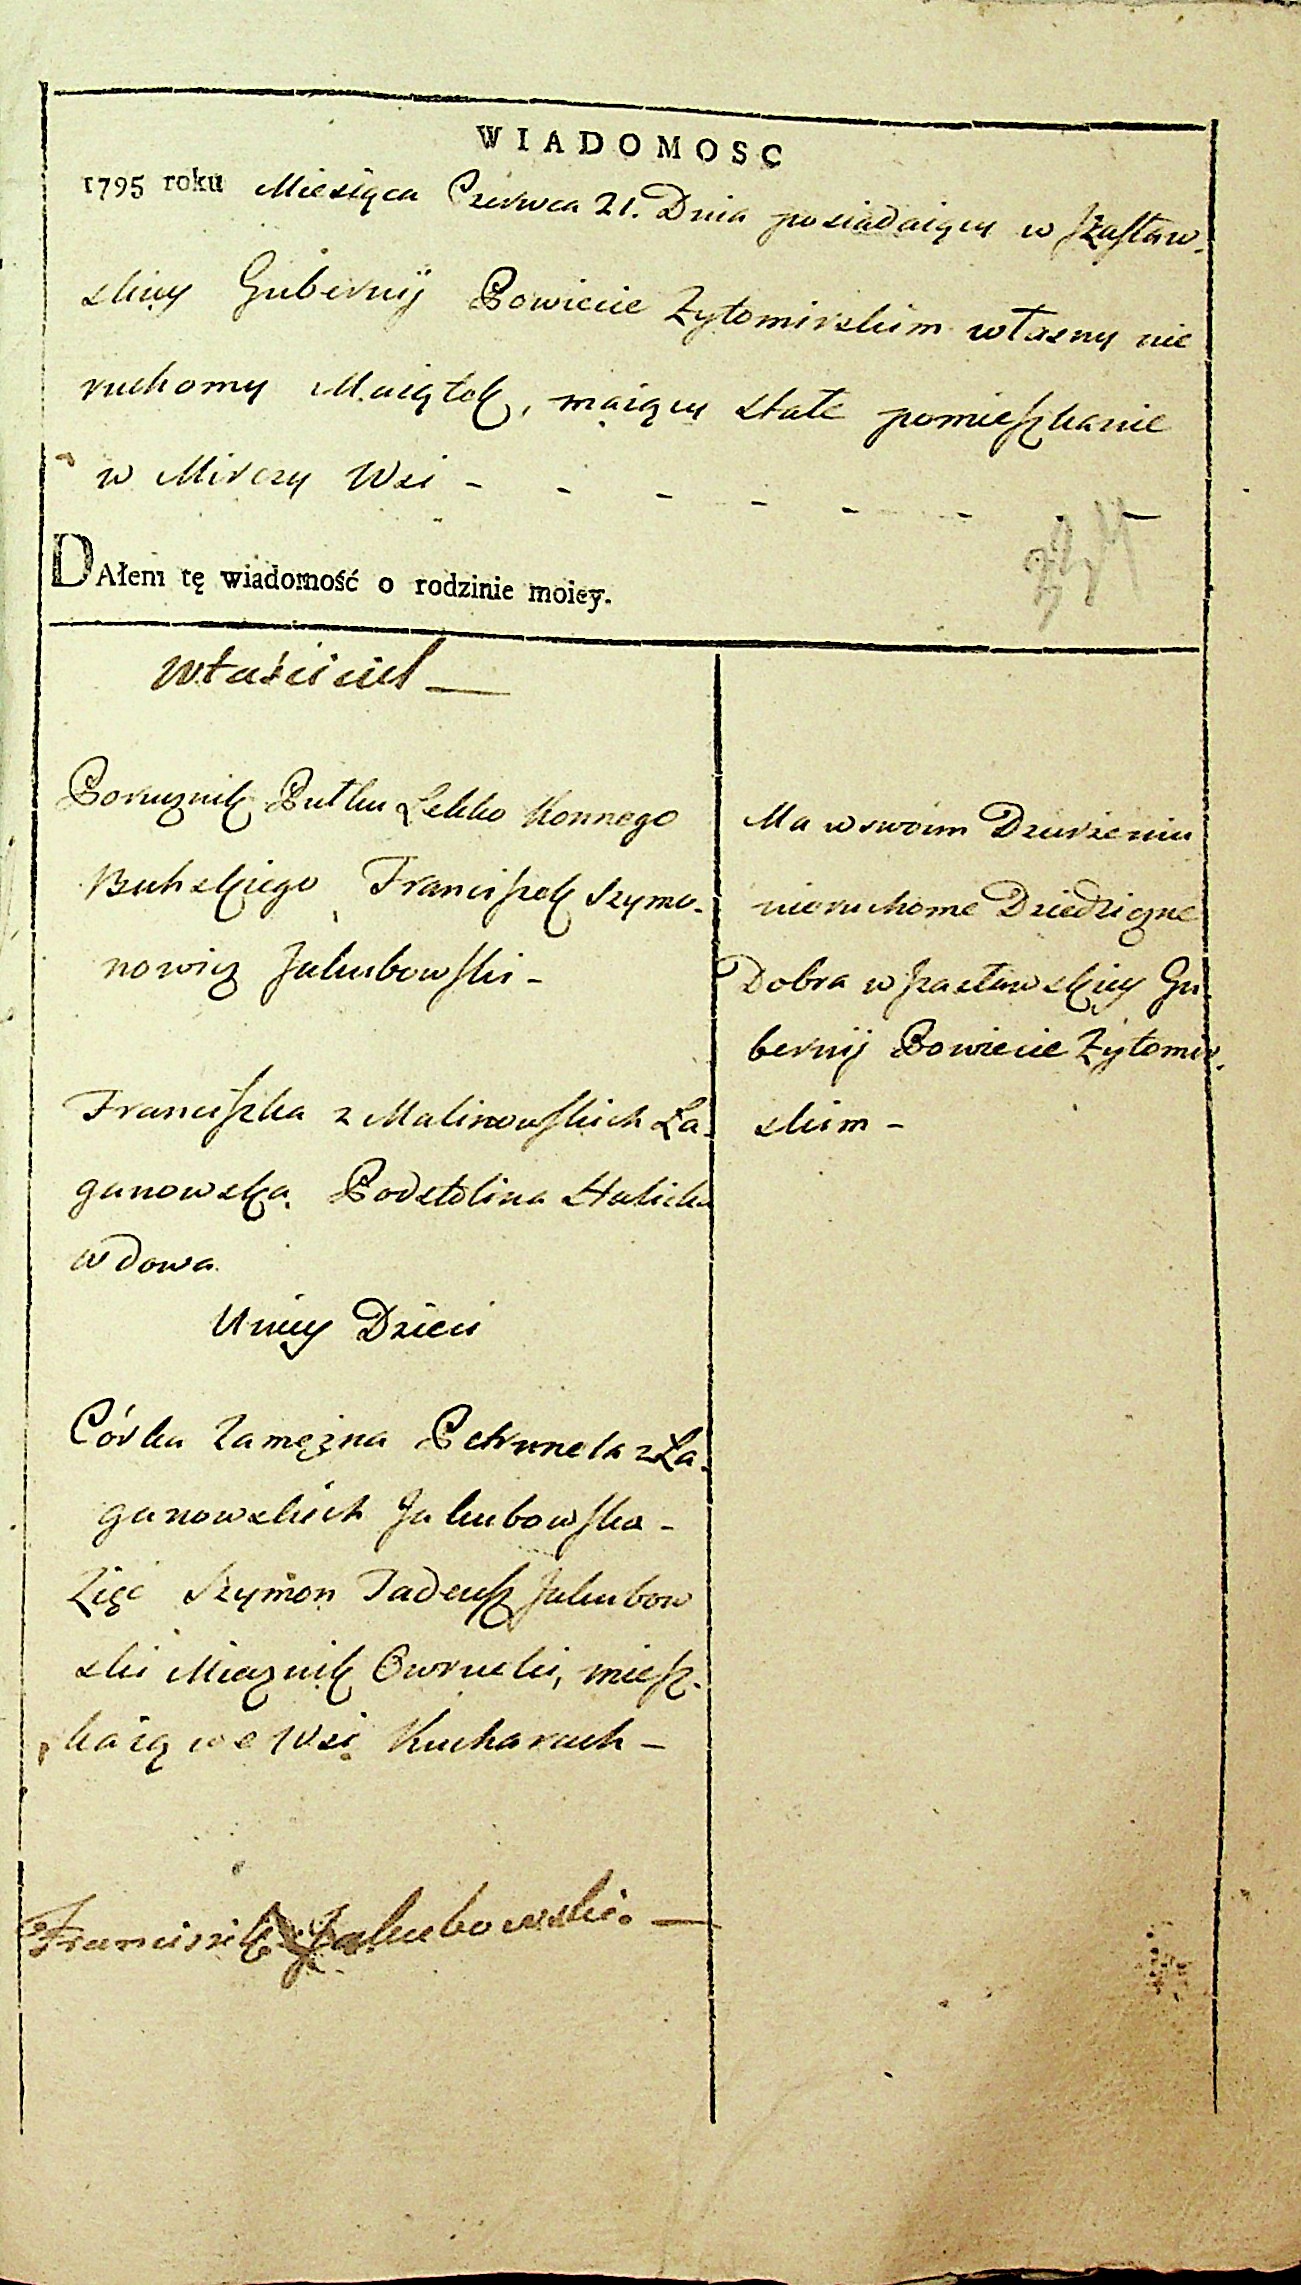 WIADOMOSC
1795 roku Miesiąca Czerwca 21. Dnia posiadaiący w Izasław-
skiey Gubernij Powiecie Zytomirskim własny nie
ruchomy Maiątek, maiący stałe pomieszkanie
w Mirczy Wsi - - - - - - - -
DAłem tę wiadomość o rodzinie moiey.
Właściciel —
Porucznik Pułku Lekko Konnego
Buhskiego Franciszek Szymo-
nowicz Jakubowski -
Franciszka z Malinowskich Ła-
ganowska Podstolina Halicka
wdowa
U niey Dzieci
Córka Zamężna Petrunela z Ła-
ganowskich Jakubowska -
Zięć Szymon Tadeusz Jakubow
ski Miecznik Owrucki, miesz-
kaią we Wsi Kucharach -
Franciszek Jakubowski. —
Ma w swoim Dzierżeniu
nieruchome Dziedziczne
Dobra w Izasławskiey Gu-
bernij Powiecie Zytomir-
skim -